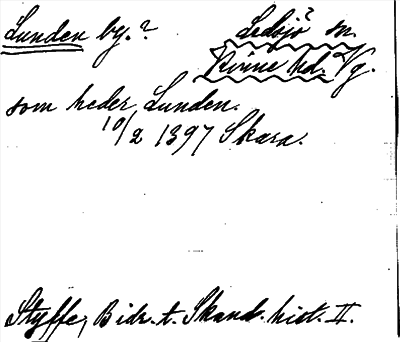 Lunden by.? Ledsjö? sn.
Kinne hd. Vg.
som heder Lunden.
10/2 1397 Skara.
Styffe, Bidr. t. Skand. hist. II.